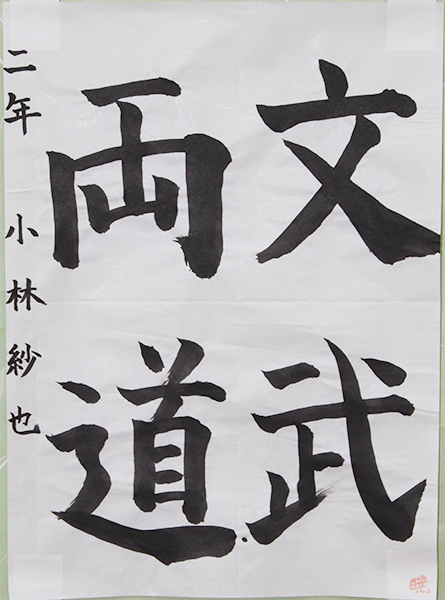 文武
両道
二年 小林紗也
暁